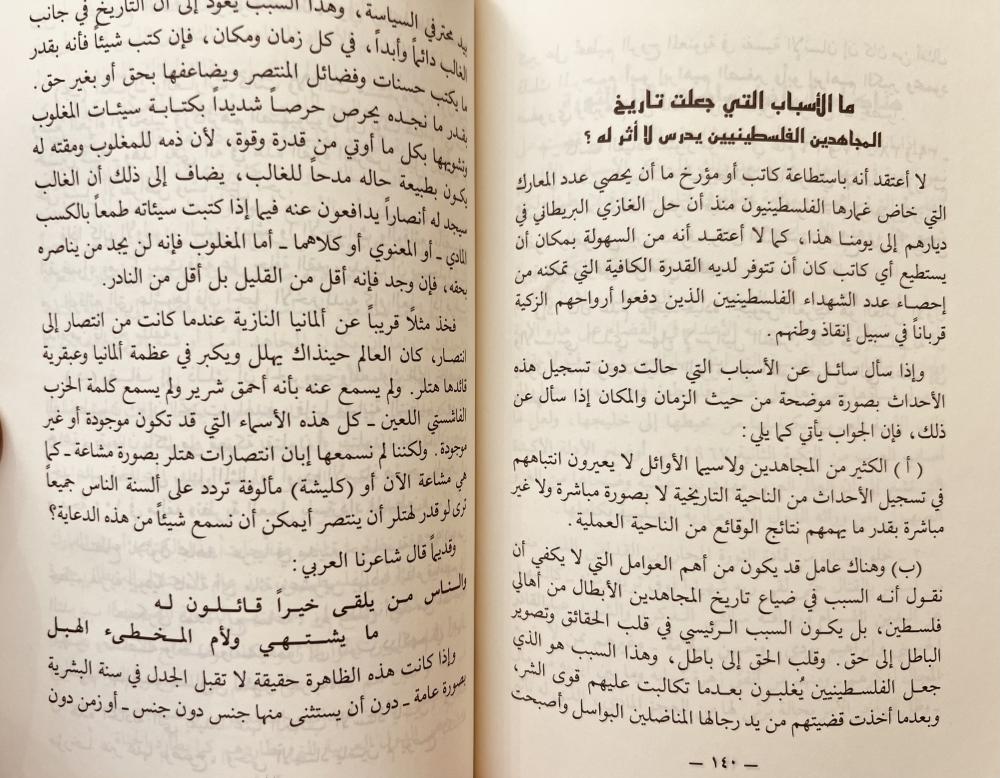 ما الأسباب التي جعلت تاريخ
المجاهدين الفلسطينيين يدرس لا أثر له ؟
لا أعتقد أنه باستطاعة كاتب أو مؤرخ ما أن يحصي عدد المعارك
التي خاض غمارها الفلسطينيون منذ أن حل الغازي البريطاني في
ديارهم إلى يومنا هذا، كما لا أعتقد أنه من السهولة بمكان أن
يستطيع أي كاتب كان أن تتوفر لديه القدرة الكافية التي تمكنه من
إحصاء عدد الشهداء الفلسطينيين الذين دفعوا أرواحهم الزكية
قرباناً في سبيل إنقاذ وطنهم .
وإذا سأل سائل عن الأسباب التي حالت دون تسجيل هذه
الأحداث بصورة موضحة من حيث الزمان والمكان إذا سأل عن
ذلك، فإن الجواب يأتي كما يلي :
( أ ) الكثير من المجاهدين ولاسيما الأوائل لا يعيرون انتباههم
في تسجيل الأحداث من الناحية التاريخية لا بصورة مباشرة ولا غير
مباشرة بقدر ما يهمهم نتائج الوقائع من الناحية العملية .
(ب) وهناك عامل قد يكون من أهم العوامل التي لا يكفي أن
نقول أنه السبب في ضياع تاريخ المجاهدين الأبطال من أهالي
فلسطين، بل يكون السبب الرئيسي في قلب الحقائق وتصوير
الباطل إلى حق . وقلب الحق إلى باطل، وهذا السبب هو الذي
جعل الفلسطينيين يُغلبون بعدما تكالبت عليهم قوى الشر،
وبعدما أخذت قضيتهم من يد رجالها المناضلين البواسل وأصبحت
— ١٤٠ —
بيد محترفي السياسة، وهذا السبب يعود إلى أن التاريخ في جانب
الغالب دائماً وأبداً، في كل زمان ومكان، فإن كتب شيئاً فأنه بقدر
ما يكتب حسنات وفضائل المنتصر ويضاعفها بحق أو بغير حق.
بقدر ما نجده يحرص حرصاً شديداً بكتابة سيئات المغلوب
وتشويهها بكل ما أوتي من قدرة وقوة، لأن ذمه للمغلوب ومقته له
يكون بطبيعة حاله مدحاً للغالب، يضاف إلى ذلك أن الغالب
سيجد له أنصاراً يدافعون عنه فيما إذا كتبت سيئاته طمعاً بالكسب
المادي ـ أو المعنوي أو كلاهما ـ أما المغلوب فإنه لن يجد من يناصره
بحقه، فإن وجد فإنه أقل من القليل بل أقل من النادر.
فخذ مثلاً قريباً عن ألمانيا النازية عندما كانت من انتصار إلى
انتصار، كان العالم حينذاك يهلل ويكبر في عظمة ألمانيا وعبقرية
قائدها هتلر. ولم يسمع عنه بأنه أحمق شرير ولم يسمع كلمة الحزب
الفاشستي اللعين ـ كل هذه الأسماء التي قد تكون موجودة أو غير
موجودة. ولكننا لم نسمعها إبان انتصارات هتلر بصورة مشاعة ـ كما
هي مشاعة الآن أو (كليشة) مألوفة تردد على ألسنة الناس جميعاً
ترى لو قدر لهتلر أن ينتصر أيمكن أن نسمع شيئاً من هذه الدعاية؟
وقديماً قال شاعرنا العربي :
والناس من يلقى خيراً قائلون له
ما يشتهي ولأم المخطىء الهبل
وإذا كانت هذه الظاهرة حقيقة لا تقبل الجدل في سنة البشرية
بصورة عامة ـ دون أن يستثنى منها جنس دون جنس ـ أو زمن دون